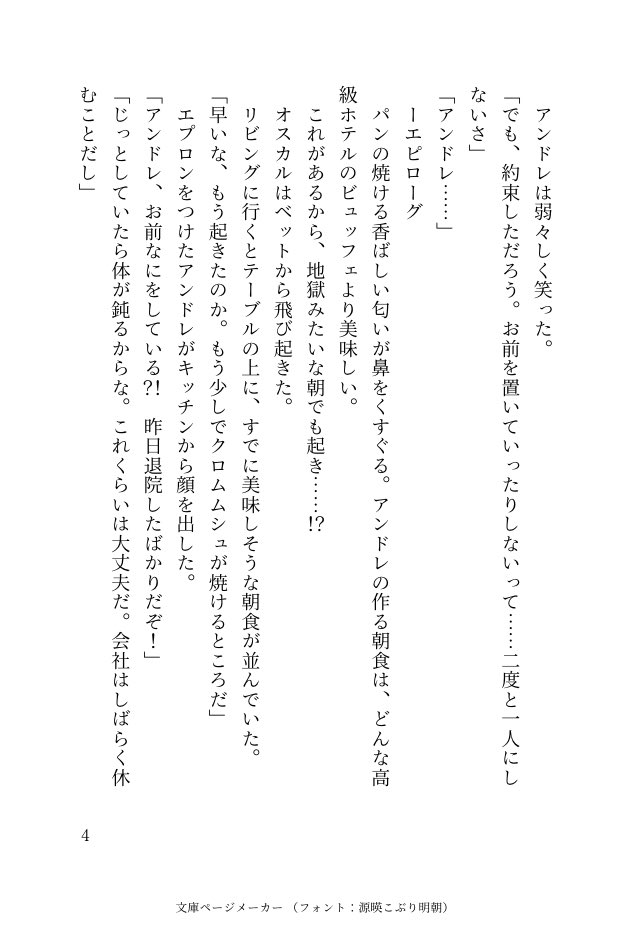 アンドレは弱々しく笑った。
「でも、約束しただろう。お前を置いていったりしないって……二度と一人にし
ないさ」
「アンドレ……」
ーエピローグ
パンの焼ける香ばしい匂いが鼻をくすぐる。アンドレの作る朝食は、どんな高
級ホテルのビュッフェより美味しい。
これがあるから、地獄みたいな朝でも起き……!?
オスカルはベットから飛び起きた。
リビングに行くとテーブルの上に、すでに美味しそうな朝食が並んでいた。
「早いな、もう起きたのか。もう少しでクロムムシュが焼けるところだ」
エプロンをつけたアンドレがキッチンから顔を出した。
「アンドレ、お前なにをしている?!　昨日退院したばかりだぞ！」
「じっとしていたら体が鈍るからな。これくらいは大丈夫だ。会社はしばらく休
むことだし」
4
文庫ページメーカー（フォント：源暎こぶり明朝）